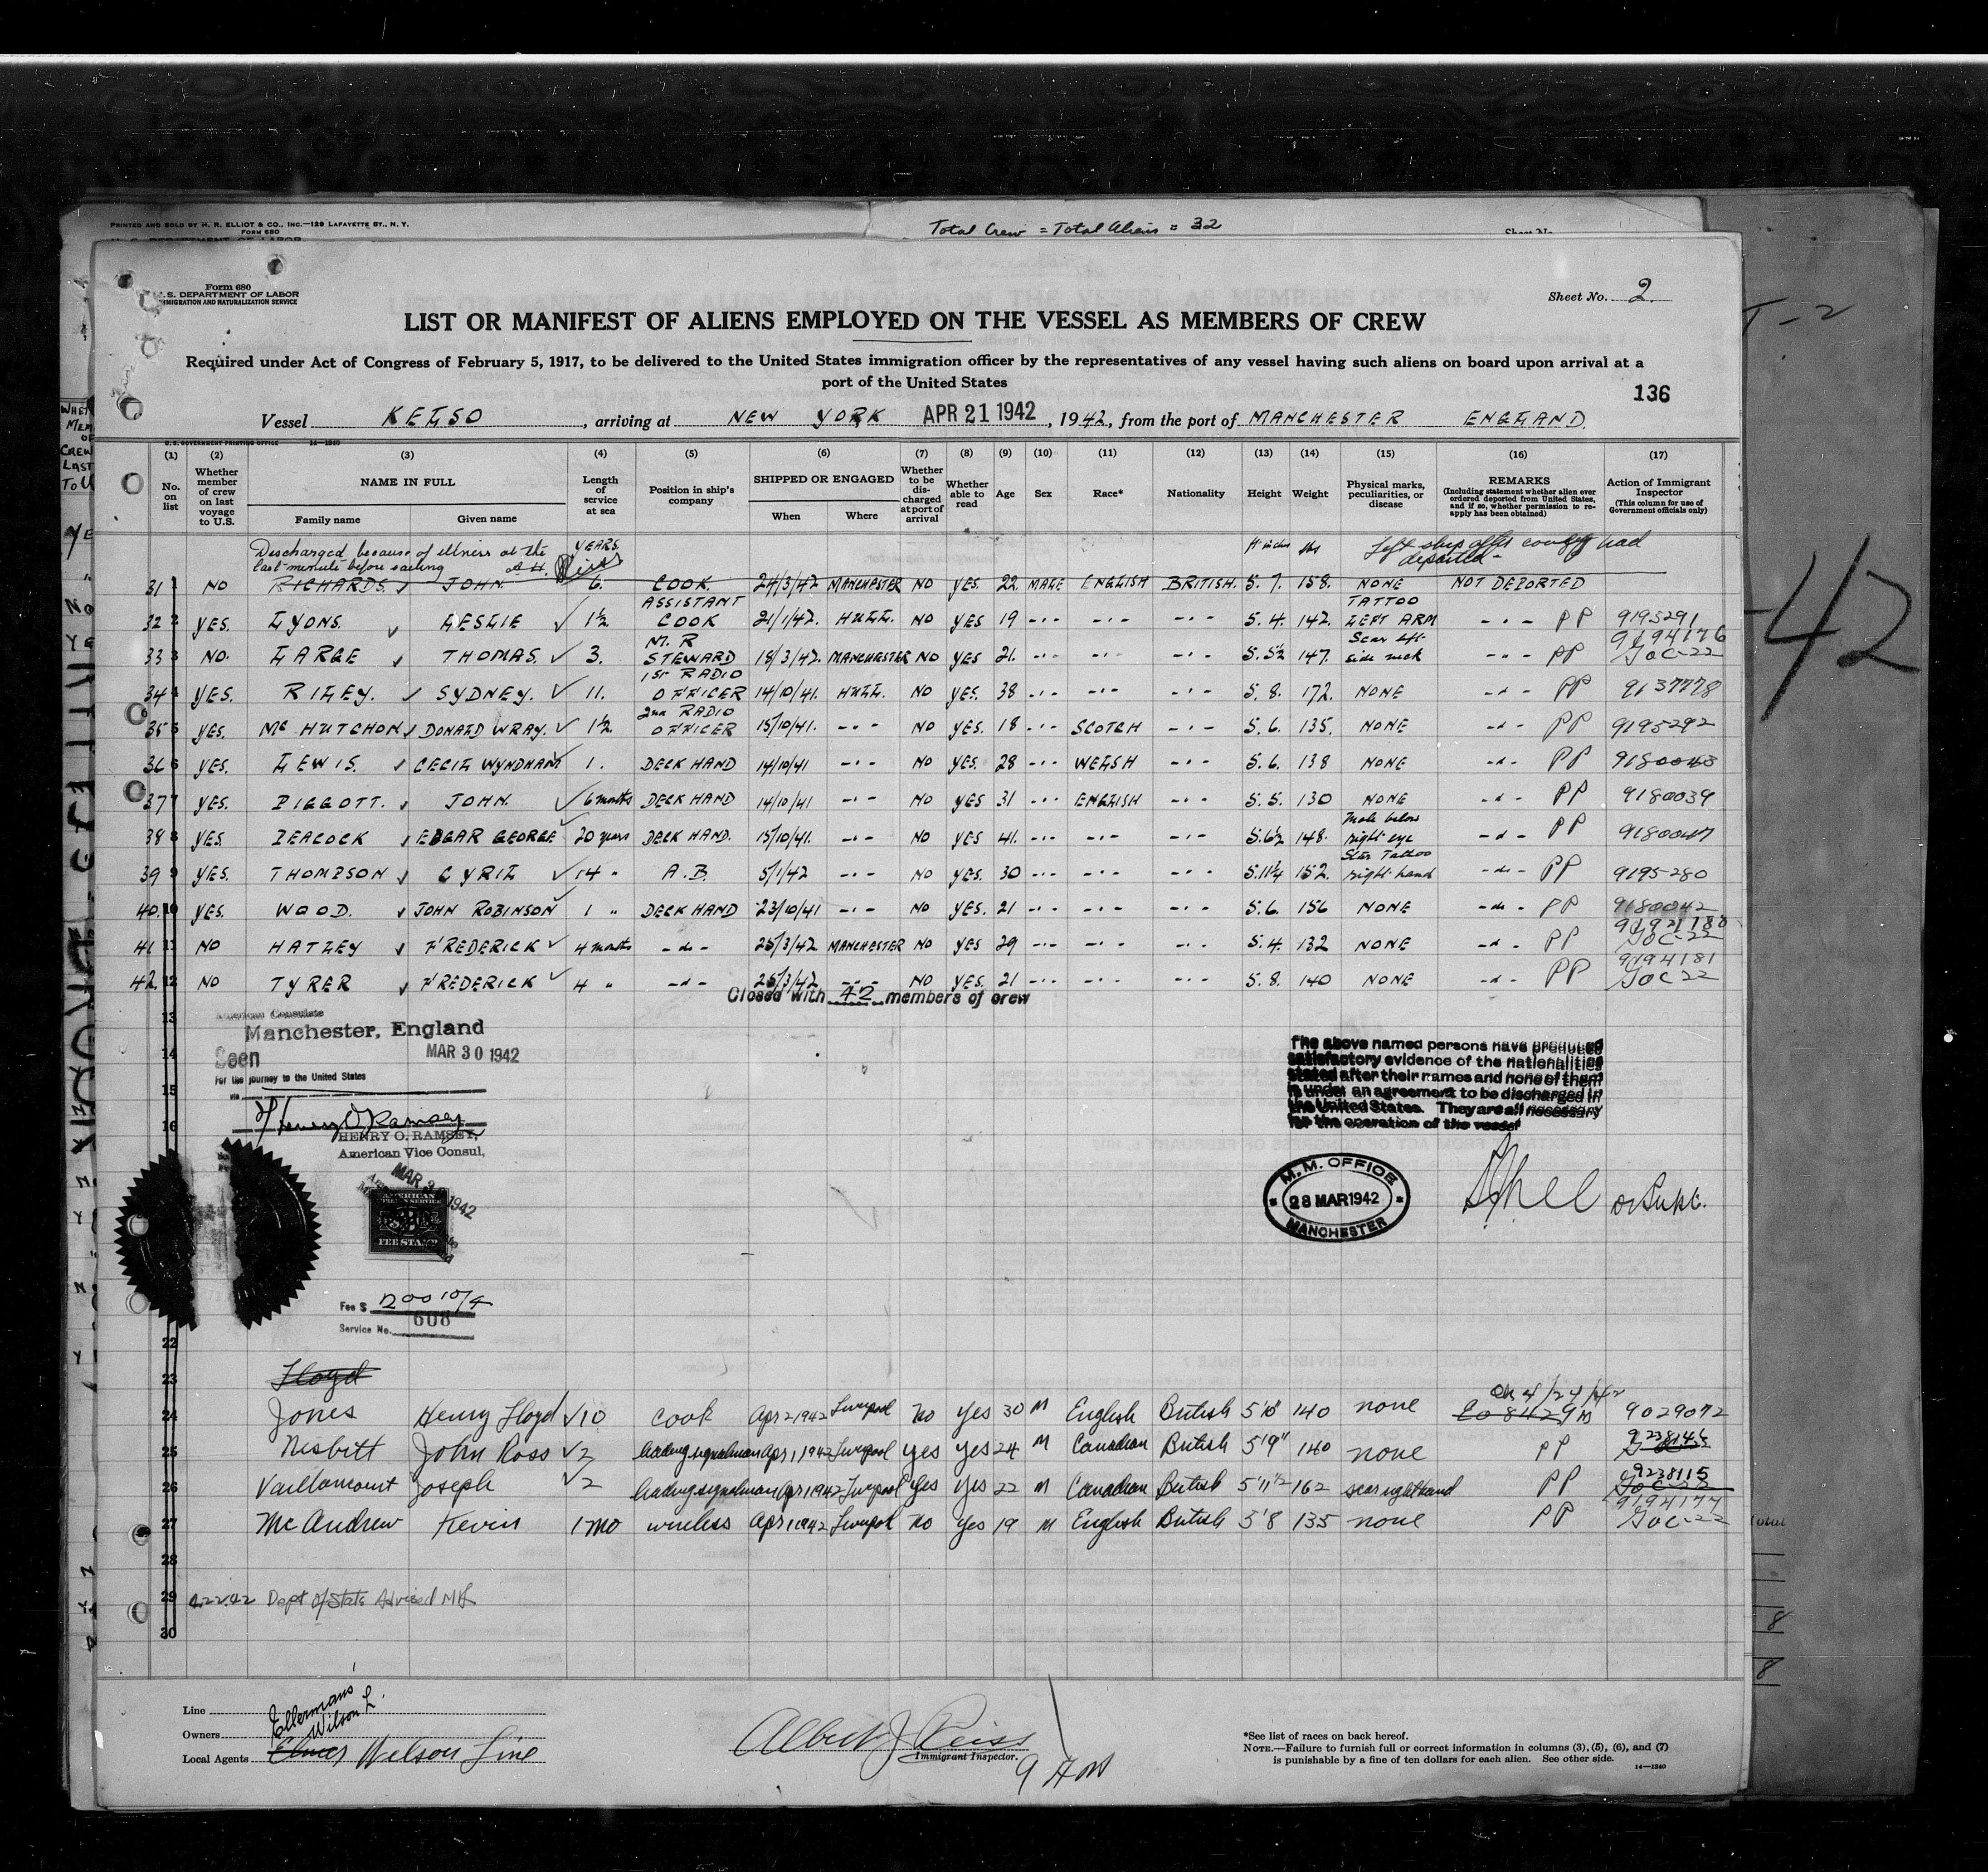 PRINTED AND SOLD BY H. R. ELLIOT & CO., INC.—128 LAFAYETTE ST., N. Y.
FORM 680
Total Crew = Total Aliens = 32
Form 680
U.S. DEPARTMENT OF LABOR
IMMIGRATION AND NATURALIZATION SERVICE
Sheet No. 2
LIST OR MANIFEST OF ALIENS EMPLOYED ON THE VESSEL AS MEMBERS OF CREW
Required under Act of Congress of February 5, 1917, to be delivered to the United States immigration officer by the representatives of any vessel having such aliens on board upon arrival at a
port of the United States
136
Vessel KELSO, arriving at NEW YORK APR 21 1942, 1942, from the port of MANCHESTER ENGLAND.
U.S. GOVERNMENT PRINTING OFFICE 14—1240
(1) No. on list
(2) Whether member of crew on last voyage to U.S.
(3) NAME IN FULL Family name Given name
(4) Length of service at sea
(5) Position in ship's company
(6) SHIPPED OR ENGAGED When Where
(7) Whether to be discharged at port of arrival
(8) Whether able to read
(9) Age
(10) Sex
(11) Race*
(12) Nationality
(13) Height
(14) Weight
(15) Physical marks, peculiarities, or disease
(16) REMARKS (Including statement whether alien ever ordered deported from United States, and if so, whether permission to reapply has been obtained)
(17) Action of Immigrant Inspector (This column for use of Government officials only)
Discharged because of illness at the YEARS. ft inches lbs Left ship after convoy had
last minute before sailing departed
31 1 NO RICHARDS. JOHN. 6. COOK. 24/3/42 MANCHESTER NO YES. 22. MALE ENGLISH BRITISH. 5. 7. 158. NONE NOT DEPORTED
32 2 YES. LYONS. LESLIE 1½ ASSISTANT COOK 21/1/42. HULL. NO YES 19 -·- -·- -·- 5. 4. 142. TATTOO LEFT ARM -·- PP 9195291
33 3 NO. LARGE THOMAS. 3. M. R STEWARD 18/3/42. MANCHESTER NO YES 21. -·- -·- -·- 5. 5½ 147. Scar left side neck -·- PP 9194176 GOC-22
34 4 YES. RILEY. SYDNEY. 11. 1ST RADIO OFFICER 14/10/41. HULL. NO YES. 38 -·- -·- -·- 5. 8. 172. NONE -d- PP 9137778
35 5 YES. Mc HUTCHON DONALD WRAY. 1½. 2nd RADIO OFFICER 15/10/41. -·- NO YES. 18 -·- SCOTCH -·- 5. 6. 135. NONE -d- PP 9195292
36 6 YES. LEWIS. CECIL WYNDHAM 1. DECK HAND 14/10/41 -·- NO YES. 28 -·- WELSH -·- 5. 6. 138 NONE -d- PP 9180043
37 7 YES. PIGGOTT. JOHN. 6 months DECK HAND 14/10/41 -·- NO YES 31 -·- ENGLISH -·- 5. 5. 130 NONE -d- PP 9180039
38 8 YES. PEACOCK EDGAR GEORGE 20 years DECK HAND. 15/10/41. -·- NO YES 41. -·- -·- -·- 5. 6½ 148. Mole below right eye -d- PP 9180047
39 9 YES. THOMPSON CYRIL 14 " A.B. 5/1/42 -·- NO YES. 30 -·- -·- -·- 5. 11½ 152. Star Tattoo right hand -do- PP 9195280
40. 10 YES. WOOD. JOHN ROBINSON 1 " DECK HAND 23/10/41 -·- NO YES. 21 -·- -·- -·- 5. 6. 156 NONE -do- PP 9180042
41 11 NO HATLEY FREDERICK 4 months -do- 25/3/42 MANCHESTER NO YES 29 -·- -·- -·- 5. 4. 132 NONE -d- PP 9192180 GOC-22
42. 12 NO TYRER FREDERICK 4 " -do- 25/3/42 -·- NO YES. 21 -·- -·- -·- 5. 8. 140 NONE -d- PP 9194181 GOC 22
Closed with 42 members of crew
13
American Consulate
Manchester, England
14 Seen MAR 30 1942
For the journey to the United States
15 via
Henry O Ramsey
16
HENRY O. RAMSEY,
American Vice Consul,
The above named persons have produced
satisfactory evidence of the nationalities
stated after their names and none of them
is under an agreement to be discharged in
the United States. They are all necessary
for the operation of the vessel
M. M. OFFICE
28 MAR 1942
MANCHESTER
AMERICAN
FEE STAMP
Fee $ 200 10/4
Service No. 608
22
23 Lloyd
24 Jones Henry Lloyd 10 cook Apr 2 1942 Liverpool No Yes 30 M English British 5'10" 140 none OK 4/24/42 9029072
25 Nesbitt John Ross 2 leading signalman Apr 1, 1942 Liverpool yes yes 24 M Canadian British 5'9" 140 none PP
26 Vaillancourt Joseph 2 leading signalman Apr 1 1942 Liverpool Yes Yes 22 M Canadian British 5'11½ 162 scar right hand PP 9238115 GOC-22
27 Mc Andrew Kevin 1 mo wireless Apr 1 1942 Liverpool No Yes 19 M English British 5'8 135 none PP 9194177 GOC-22
28
29 4.22.42 Dept of State Advised
30
Line Ellermans
Owners Wilson L.
Local Agents Wilson Line
Albert J. Reiss
Immigrant Inspector.
*See list of races on back hereof.
NOTE.—Failure to furnish full or correct information in columns (3), (5), (6), and (7)
is punishable by a fine of ten dollars for each alien. See other side.
14—1240
42